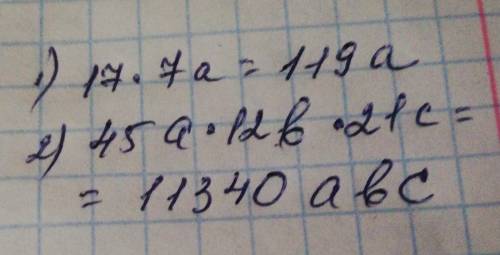 1) 17 · 7a = 119a
2) 45a · 12b · 21c =
= 11340 abc